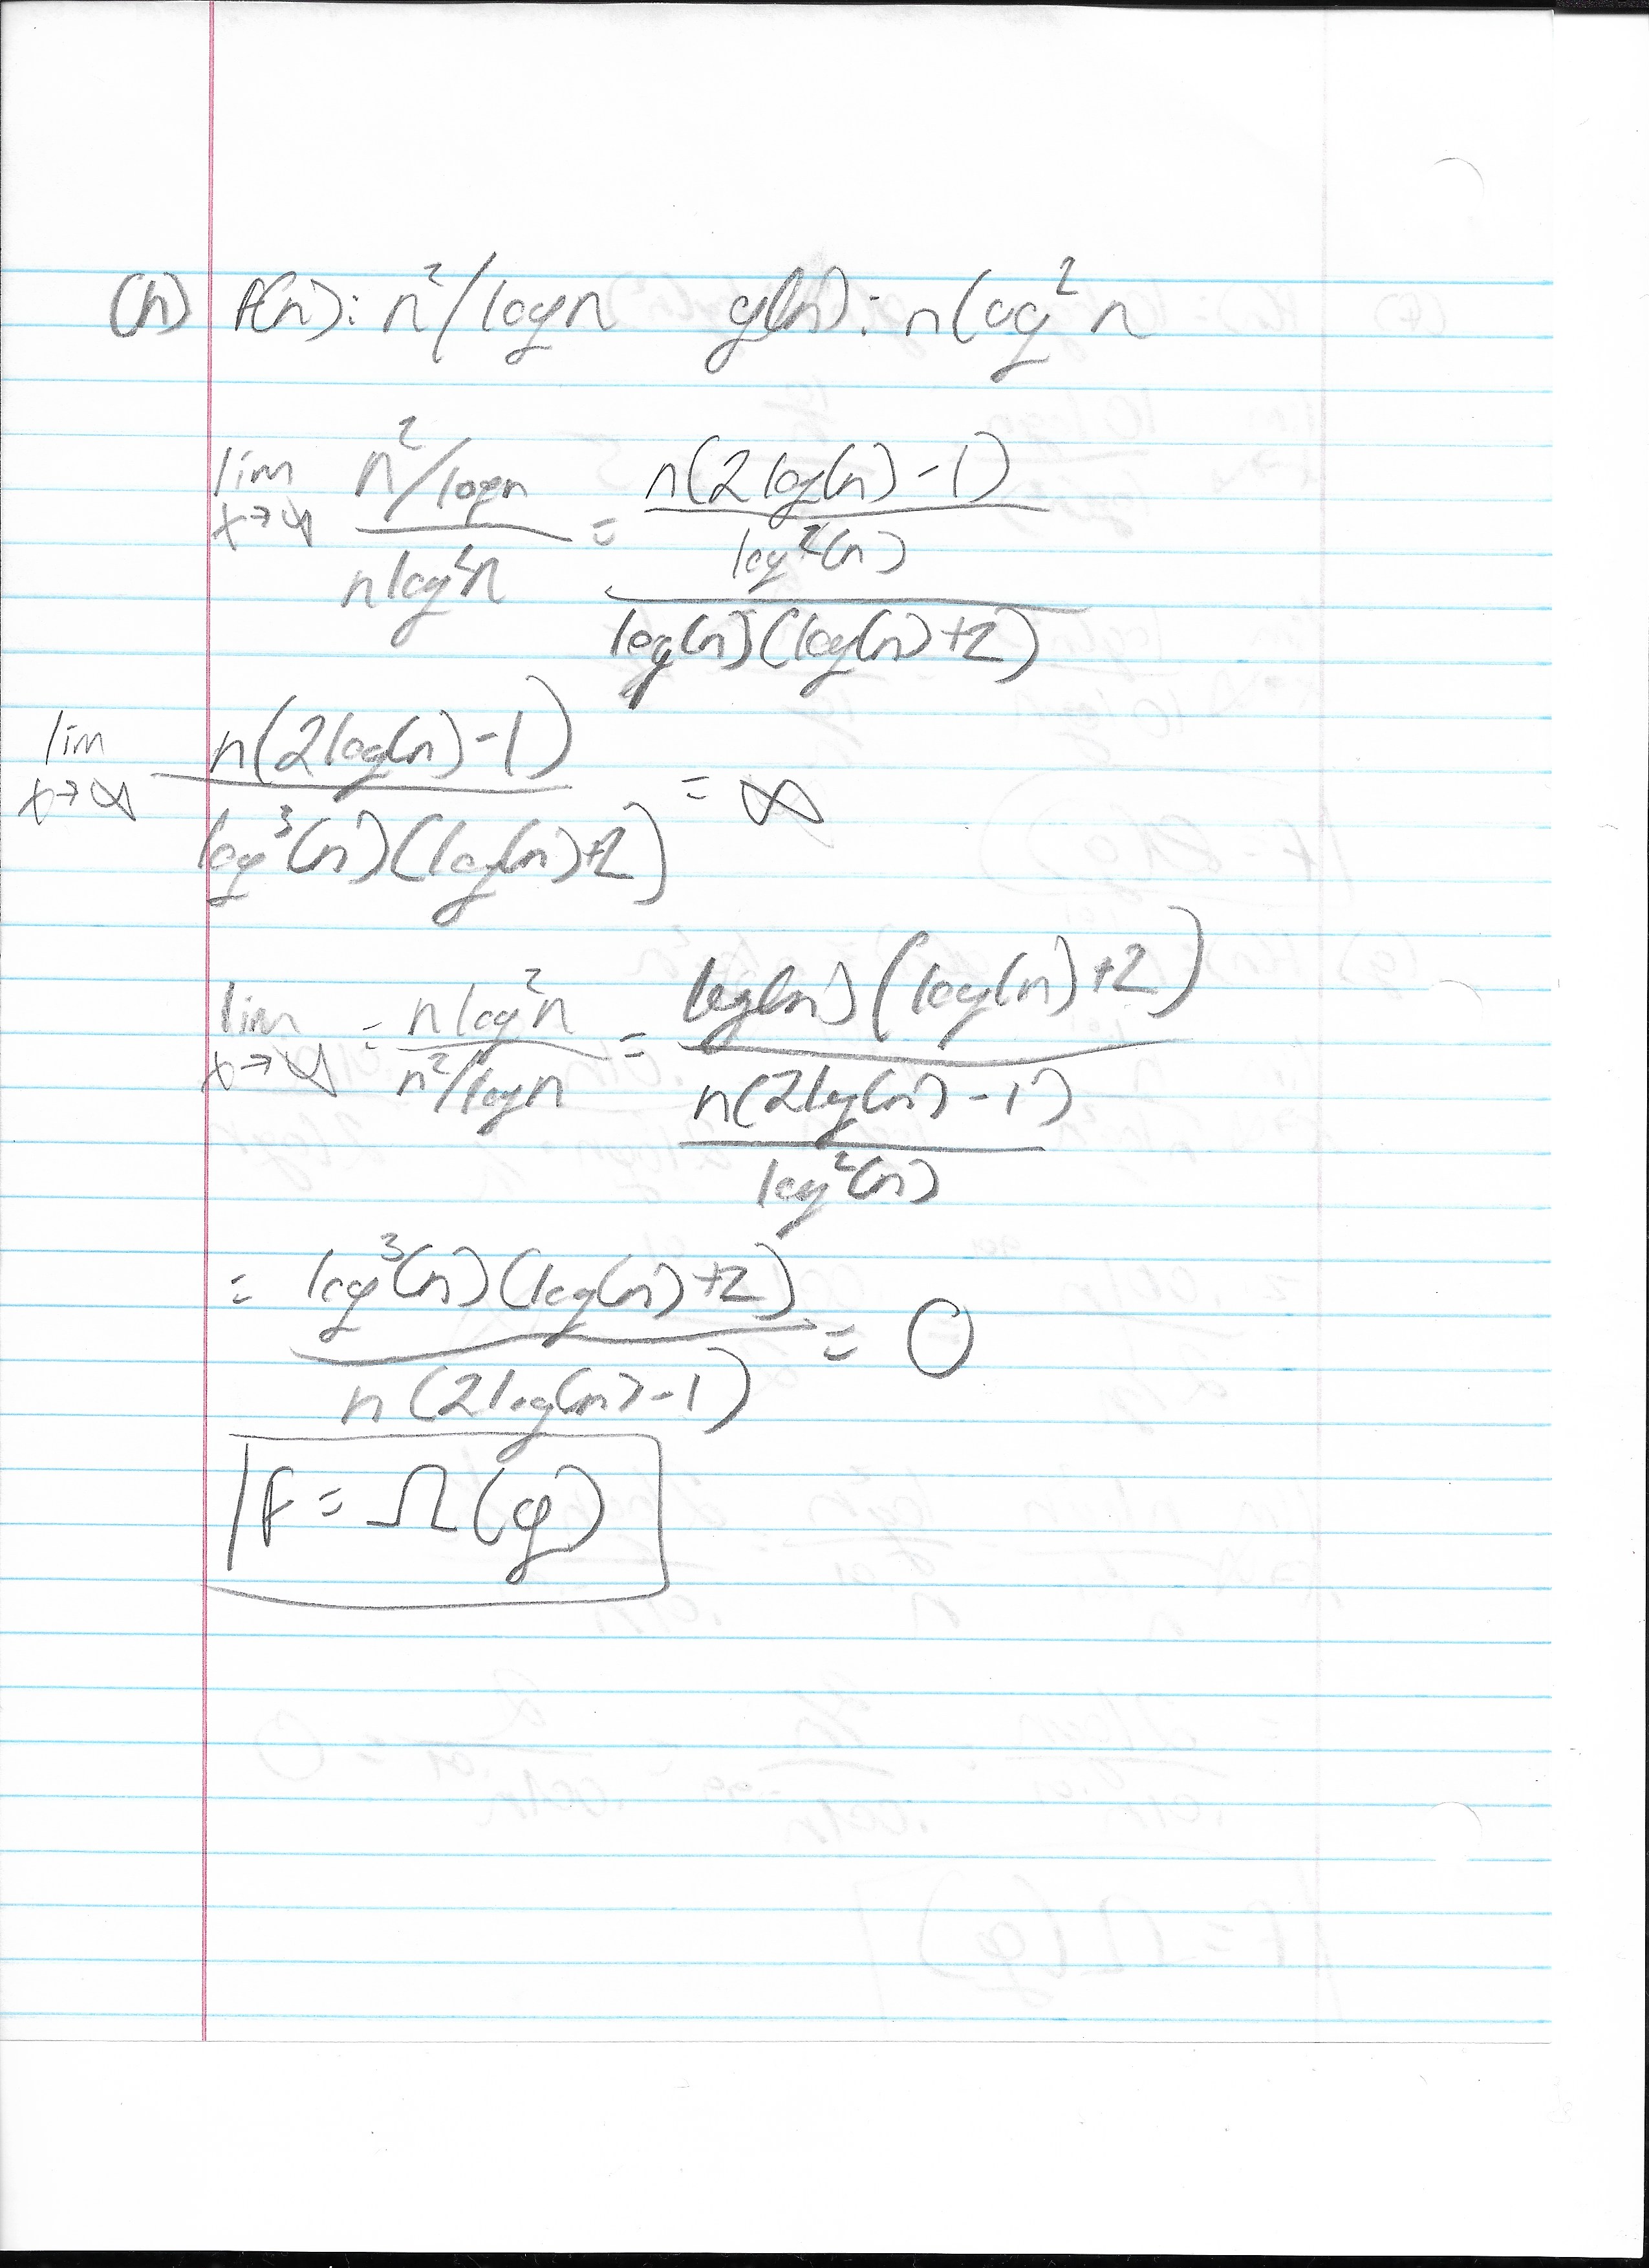 (h) f(n): n²/logn g(n): nlog²n
lim x→∞ (n²/logn)/(nlog²n) = (n(2log(n)-1)/log²(n))/(log(n)(log(n)+2))
lim x→∞ n(2log(n)-1)/(log³(n)(log(n)+2)) = ∞
lim x→∞ = nlog²n/(n²/logn) = log(n)(log(n)+2)/(n(2log(n)-1)/log²(n))
= log³(n)(log(n)+2)/(n(2log(n)-1)) = 0
f = Ω(g)